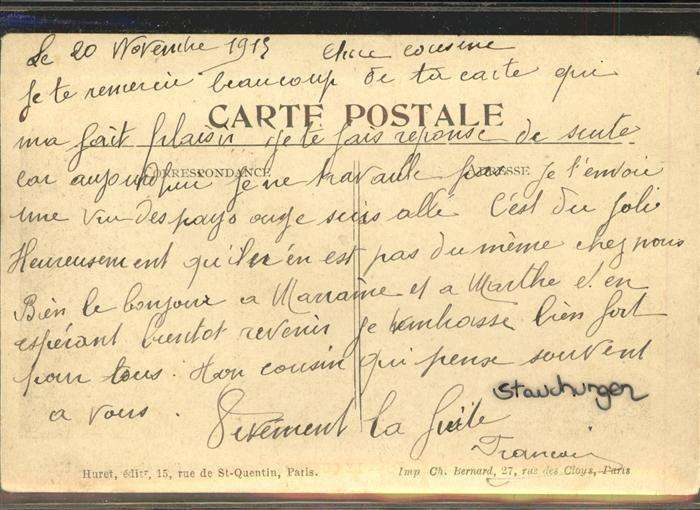 Le 20 Novembre 1915 Chère cousine
Je te remercie beaucoup de ta carte qui
CARTE POSTALE
ma fait plaisir je te fais reponse de suite
CORRESPONDANCE ADRESSE
car aujourdhui je ne travaille pas je t'envoie
une vue des pays ou je suis allé C'est du joli
Heureusement qu'il n'en est pas du même chez nous
Bien le bonjour a Marraine et a Marthe et en
espérant bientot revenir je t'embrasse bien fort
pour tous. Ton cousin qui pense souvent
a vous.
Stauchungen
Vivement la fuite
Francois
Huret, édit., 15, rue de St-Quentin, Paris. Imp Ch. Bernard, 27, rue des Cloys, Paris